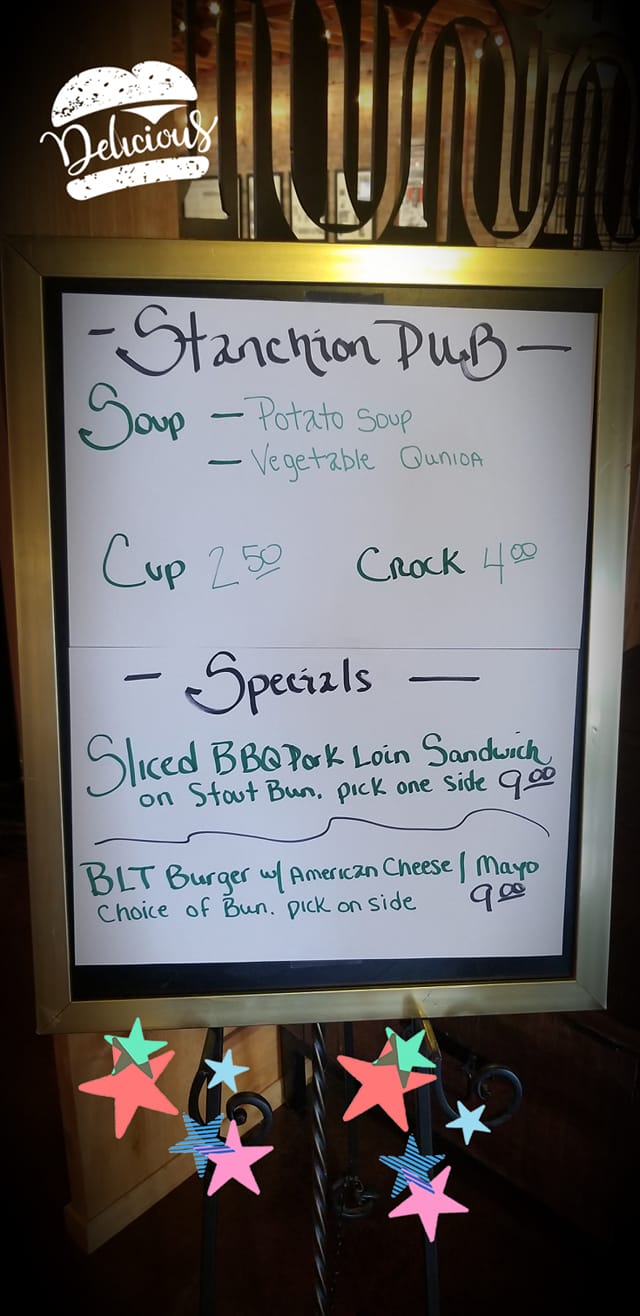 Delicious
- Stanchion Pub -
Soup - Potato Soup
- Vegetable Qunioa
Cup 2 50 Crock 4 00
- Specials -
Sliced BBQ Pork Loin Sandwich
on Stout Bun. pick one side 9 00
BLT Burger w/ American Cheese / Mayo
Choice of Bun. pick on side 9 00